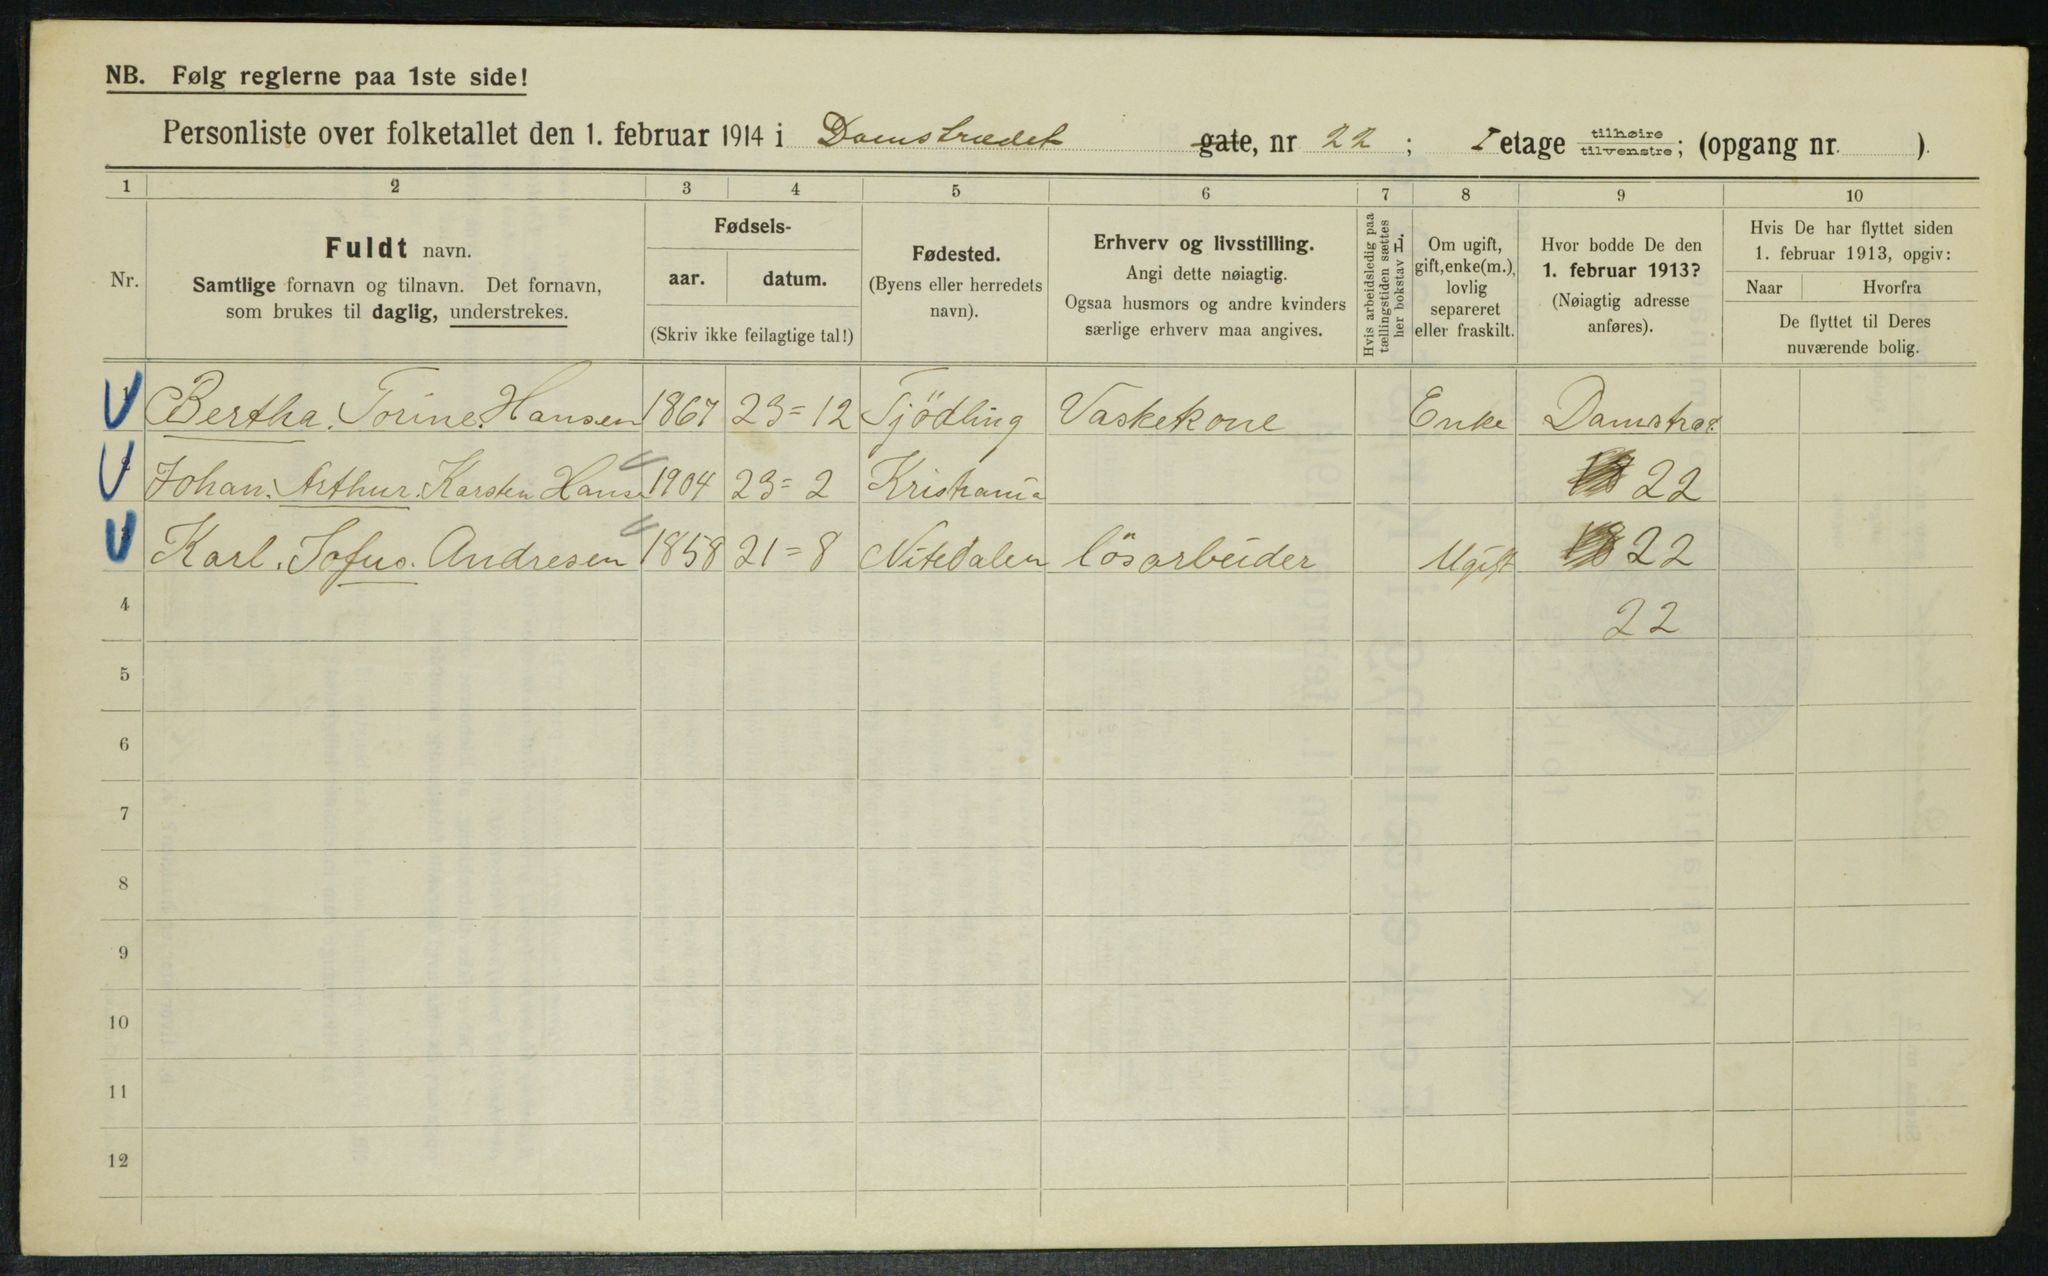 NB. Følg reglerne paa 1ste side!
Personliste over folketallet den 1. februar 1914 i Damstrædet gate, nr 22; I etage tilhøire tilvenstre; (opgang nr. ).
1 2 3 4 5 6 7 8 9 10
Nr.
Fuldt navn.
Samtlige fornavn og tilnavn. Det fornavn,
som brukes til daglig, understrekes.
Fødsels-
aar. datum.
(Skriv ikke feilagtige tal!)
Fødested.
(Byens eller herredets
navn).
Erhverv og livsstilling.
Angi dette nøiagtig.
Ogsaa husmors og andre kvinders
særlige erhverv maa angives.
Hvis arbeidsledig paa
tællingstiden sættes
her bokstav L.
Om ugift,
gift, enke(m.),
lovlig
separeret
eller fraskilt.
Hvor bodde De den
1. februar 1913?
(Nøiagtig adresse
anføres).
Hvis De har flyttet siden
1. februar 1913, opgiv:
Naar Hvorfra
De flyttet til Deres
nuværende bolig.
Bertha. Torine. Hansen 1867 23=12 Tjödling Vaskekone Enke Damstræd
Johan. Arthur. Karsten Hanse 1904 23=2 Kristiania 22
Karl. Sofus. Andresen 1858 21=8 Nitedalen lösarbeider Ugift 22
4 22
5
6
7
8
9
10
11
12